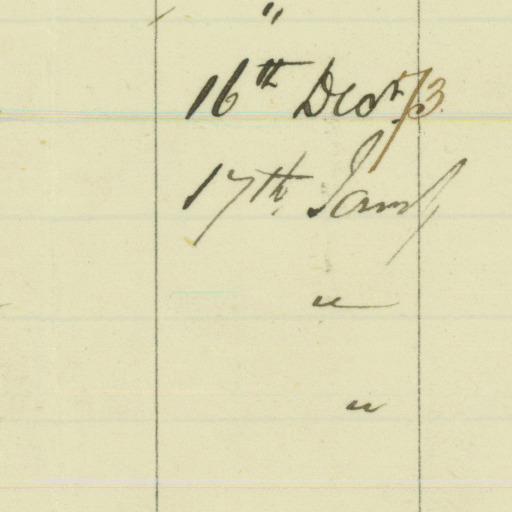 "
16th Decr /73
17th Jany
"
"